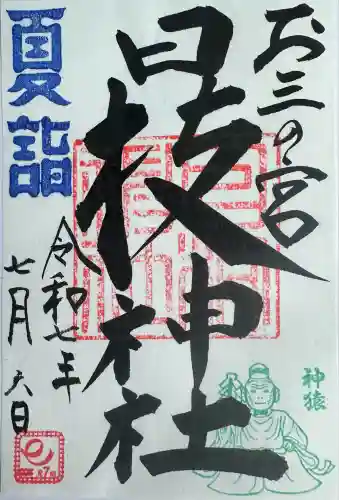 お三の宮
日枝神社
夏詣
令和七年
七月六日
神猿